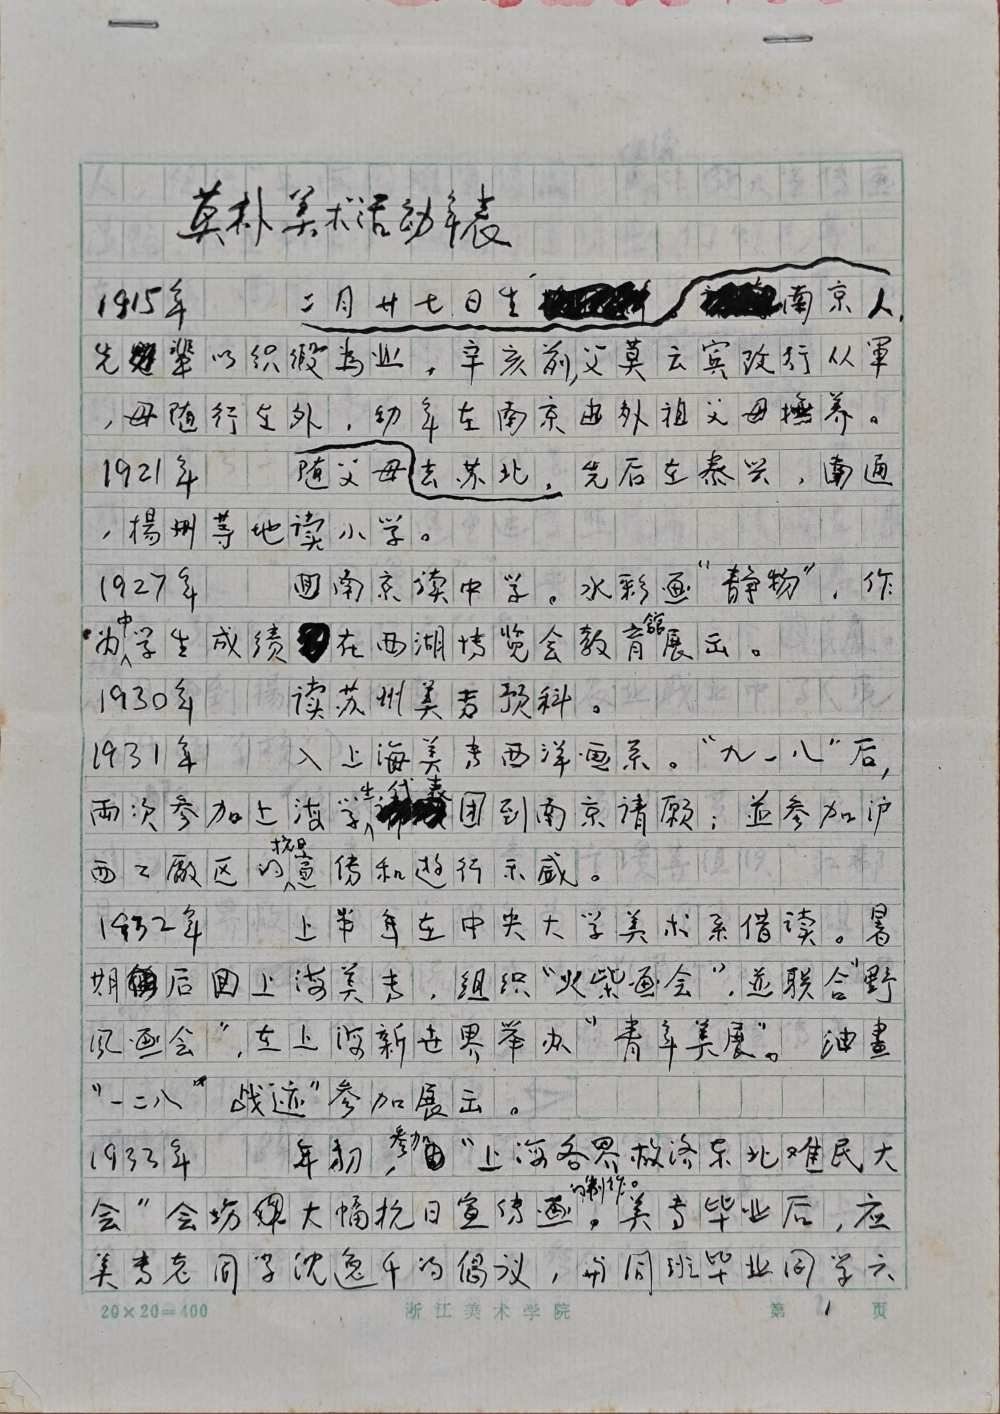 莫朴美术活动年表
1915年 二月廿七日生 南京人，
先辈以织缎为业，辛亥前，父莫云宾改行从軍
，母随行在外，幼年在南京由外祖父母撫养。
1921年 随父母去苏北，先后在泰兴，南通
，揚州等地读小学。
1927年 回南京读中学。水彩画“静物”，作
为中学生成绩在西湖博览会教育館展出。
1930年 读苏州美专预科。
1931年 入上海美专西洋画系。“九一八”后，
两次参加上海学生代表团到南京请愿；並参加沪
西工厰区的抗日宣传和遊行示威。
1932年 上半年在中央大学美术系借读。暑
期后回上海美专，组织“火柴画会”，並联合“野
风画会”，在上海新世界举办“青年美展”。油畫
“一二八”战迹”参加展出。
1933年 年初，参加“上海各界救济东北难民大
会”会场大幅抗日宣传画的制作。美专毕业后，应
美专老同学沈逸千的倡议，与同班毕业同学六
20×20=400 浙江美术学院 第 1 页